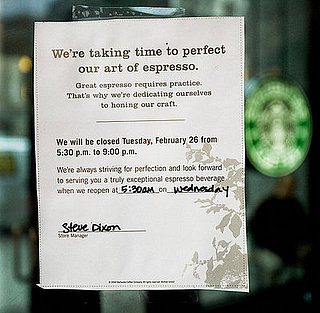 We're taking time to perfect
our art of espresso.
Great espresso requires practice.
That's why we're dedicating ourselves
to honing our craft.
We will be closed Tuesday, February 26 from
5:30 p.m. to 9:00 p.m.
We're always striving for perfection and look forward
to serving you a truly exceptional espresso beverage
when we reopen at 5:30am on Wednesday
Steve Dixon
Store Manager